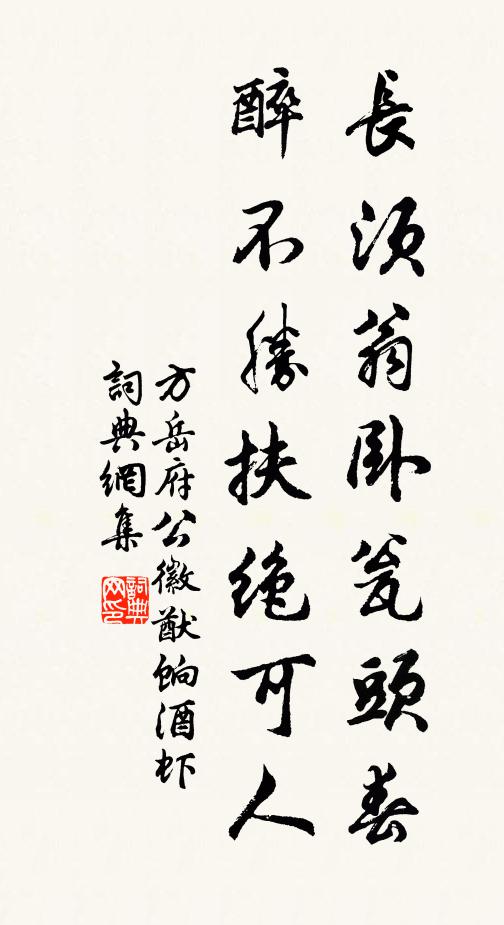 長須翁臥瓮頭春
醉不勝扶絕可人
方岳府公徽猷餉酒虾
詞典網集
詞典
网印